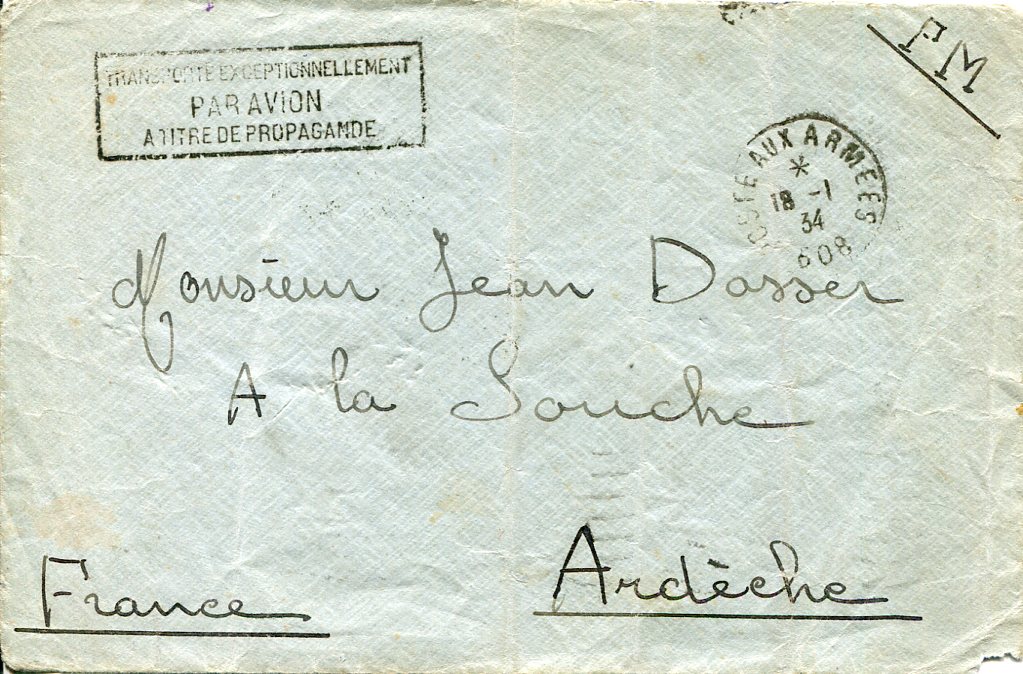 TRANSPORTÉ EXCEPTIONNELLEMENT
PAR AVION
A TITRE DE PROPAGANDE
FM
POSTE AUX ARMÉES
*
18 -1
34
608
Monsieur Jean Dasser
A la Souche
Ardèche
France